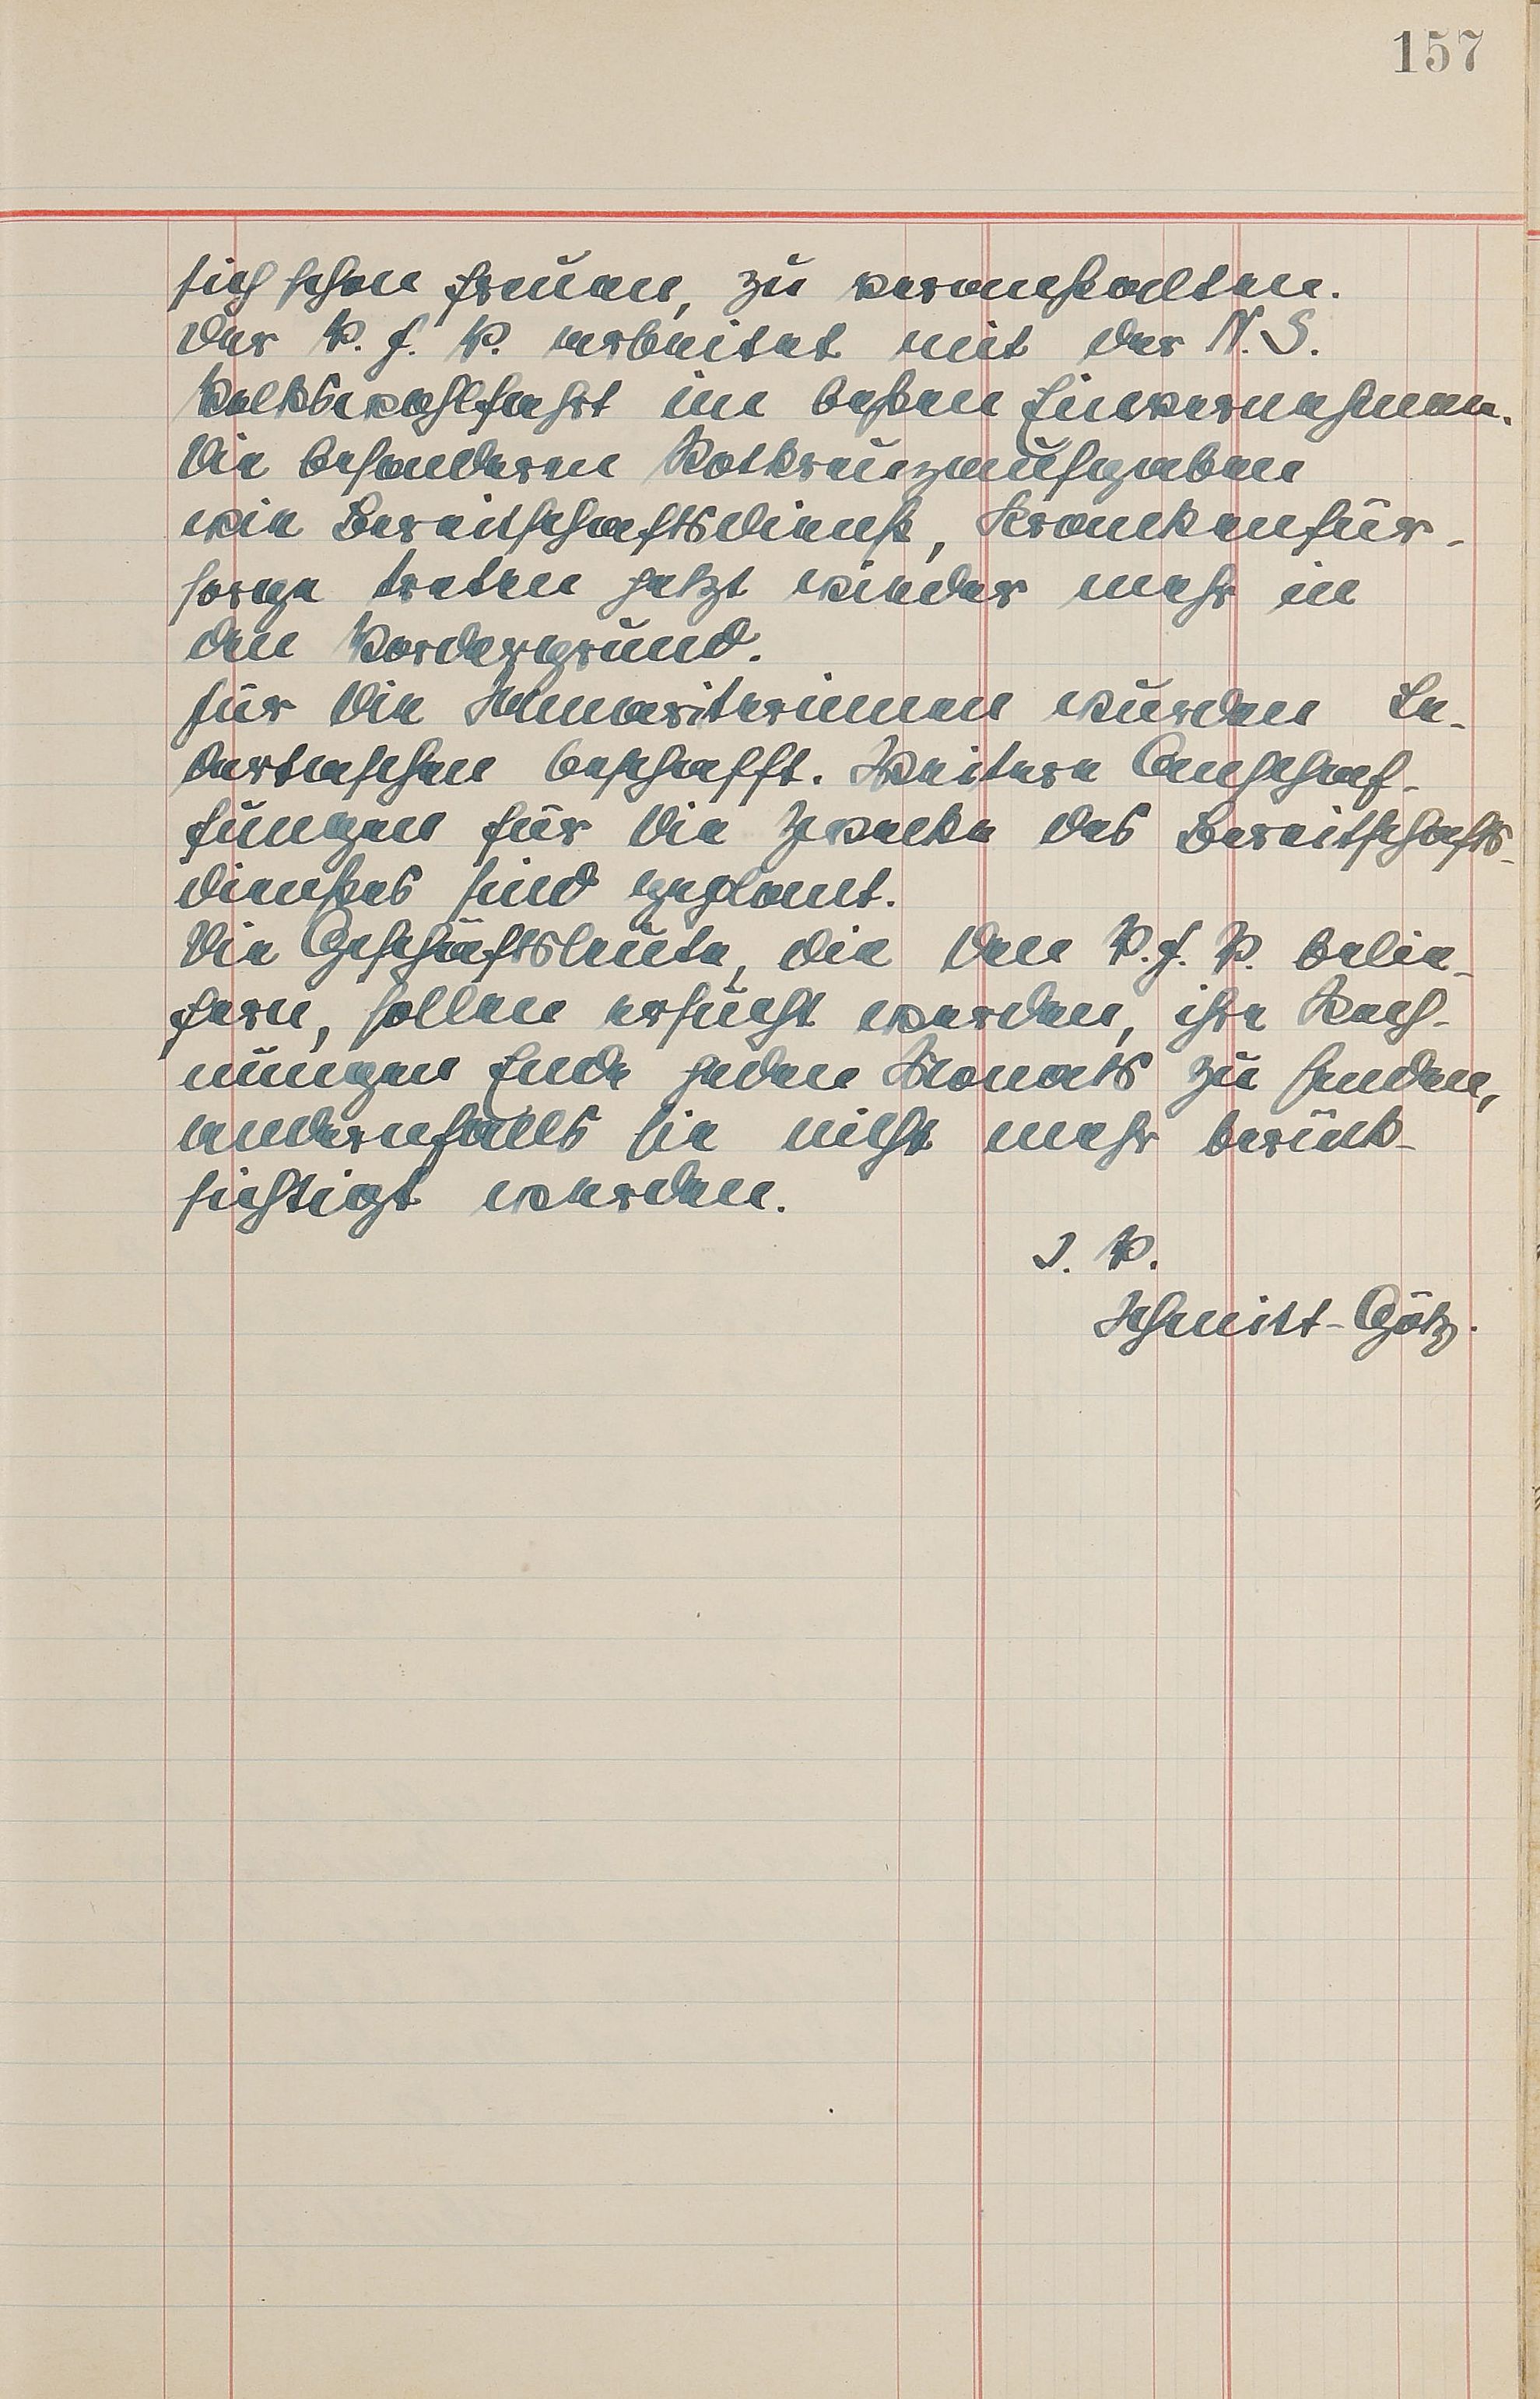 157
sich schon freuen, zu veranstalten.
Der V. f. V. arbeitet mit der N.S.
Volkswohlfahrt im besten Einvernehmen.
Die besonderen Rotkreuzaufgaben
wie Bereitschaftsdienst, Krankenfür-
sorge treten jetzt wieder mehr in
den Vordergrund.
Für die Samariterinnen wurden Le-
dertaschen beschafft. Weitere Anschaf-
fungen für die Zwecke des Bereitschafts-
dienstes sind geplant.
Die Geschäftsleute, die den V.f.V. belie-
fern, sollen ersucht werden, ihre Rech-
nungen Ende jeden Monats zu senden,
andernfalls sie nicht mehr berück-
sichtigt werden.
I. V.
Schmitt-Götz.